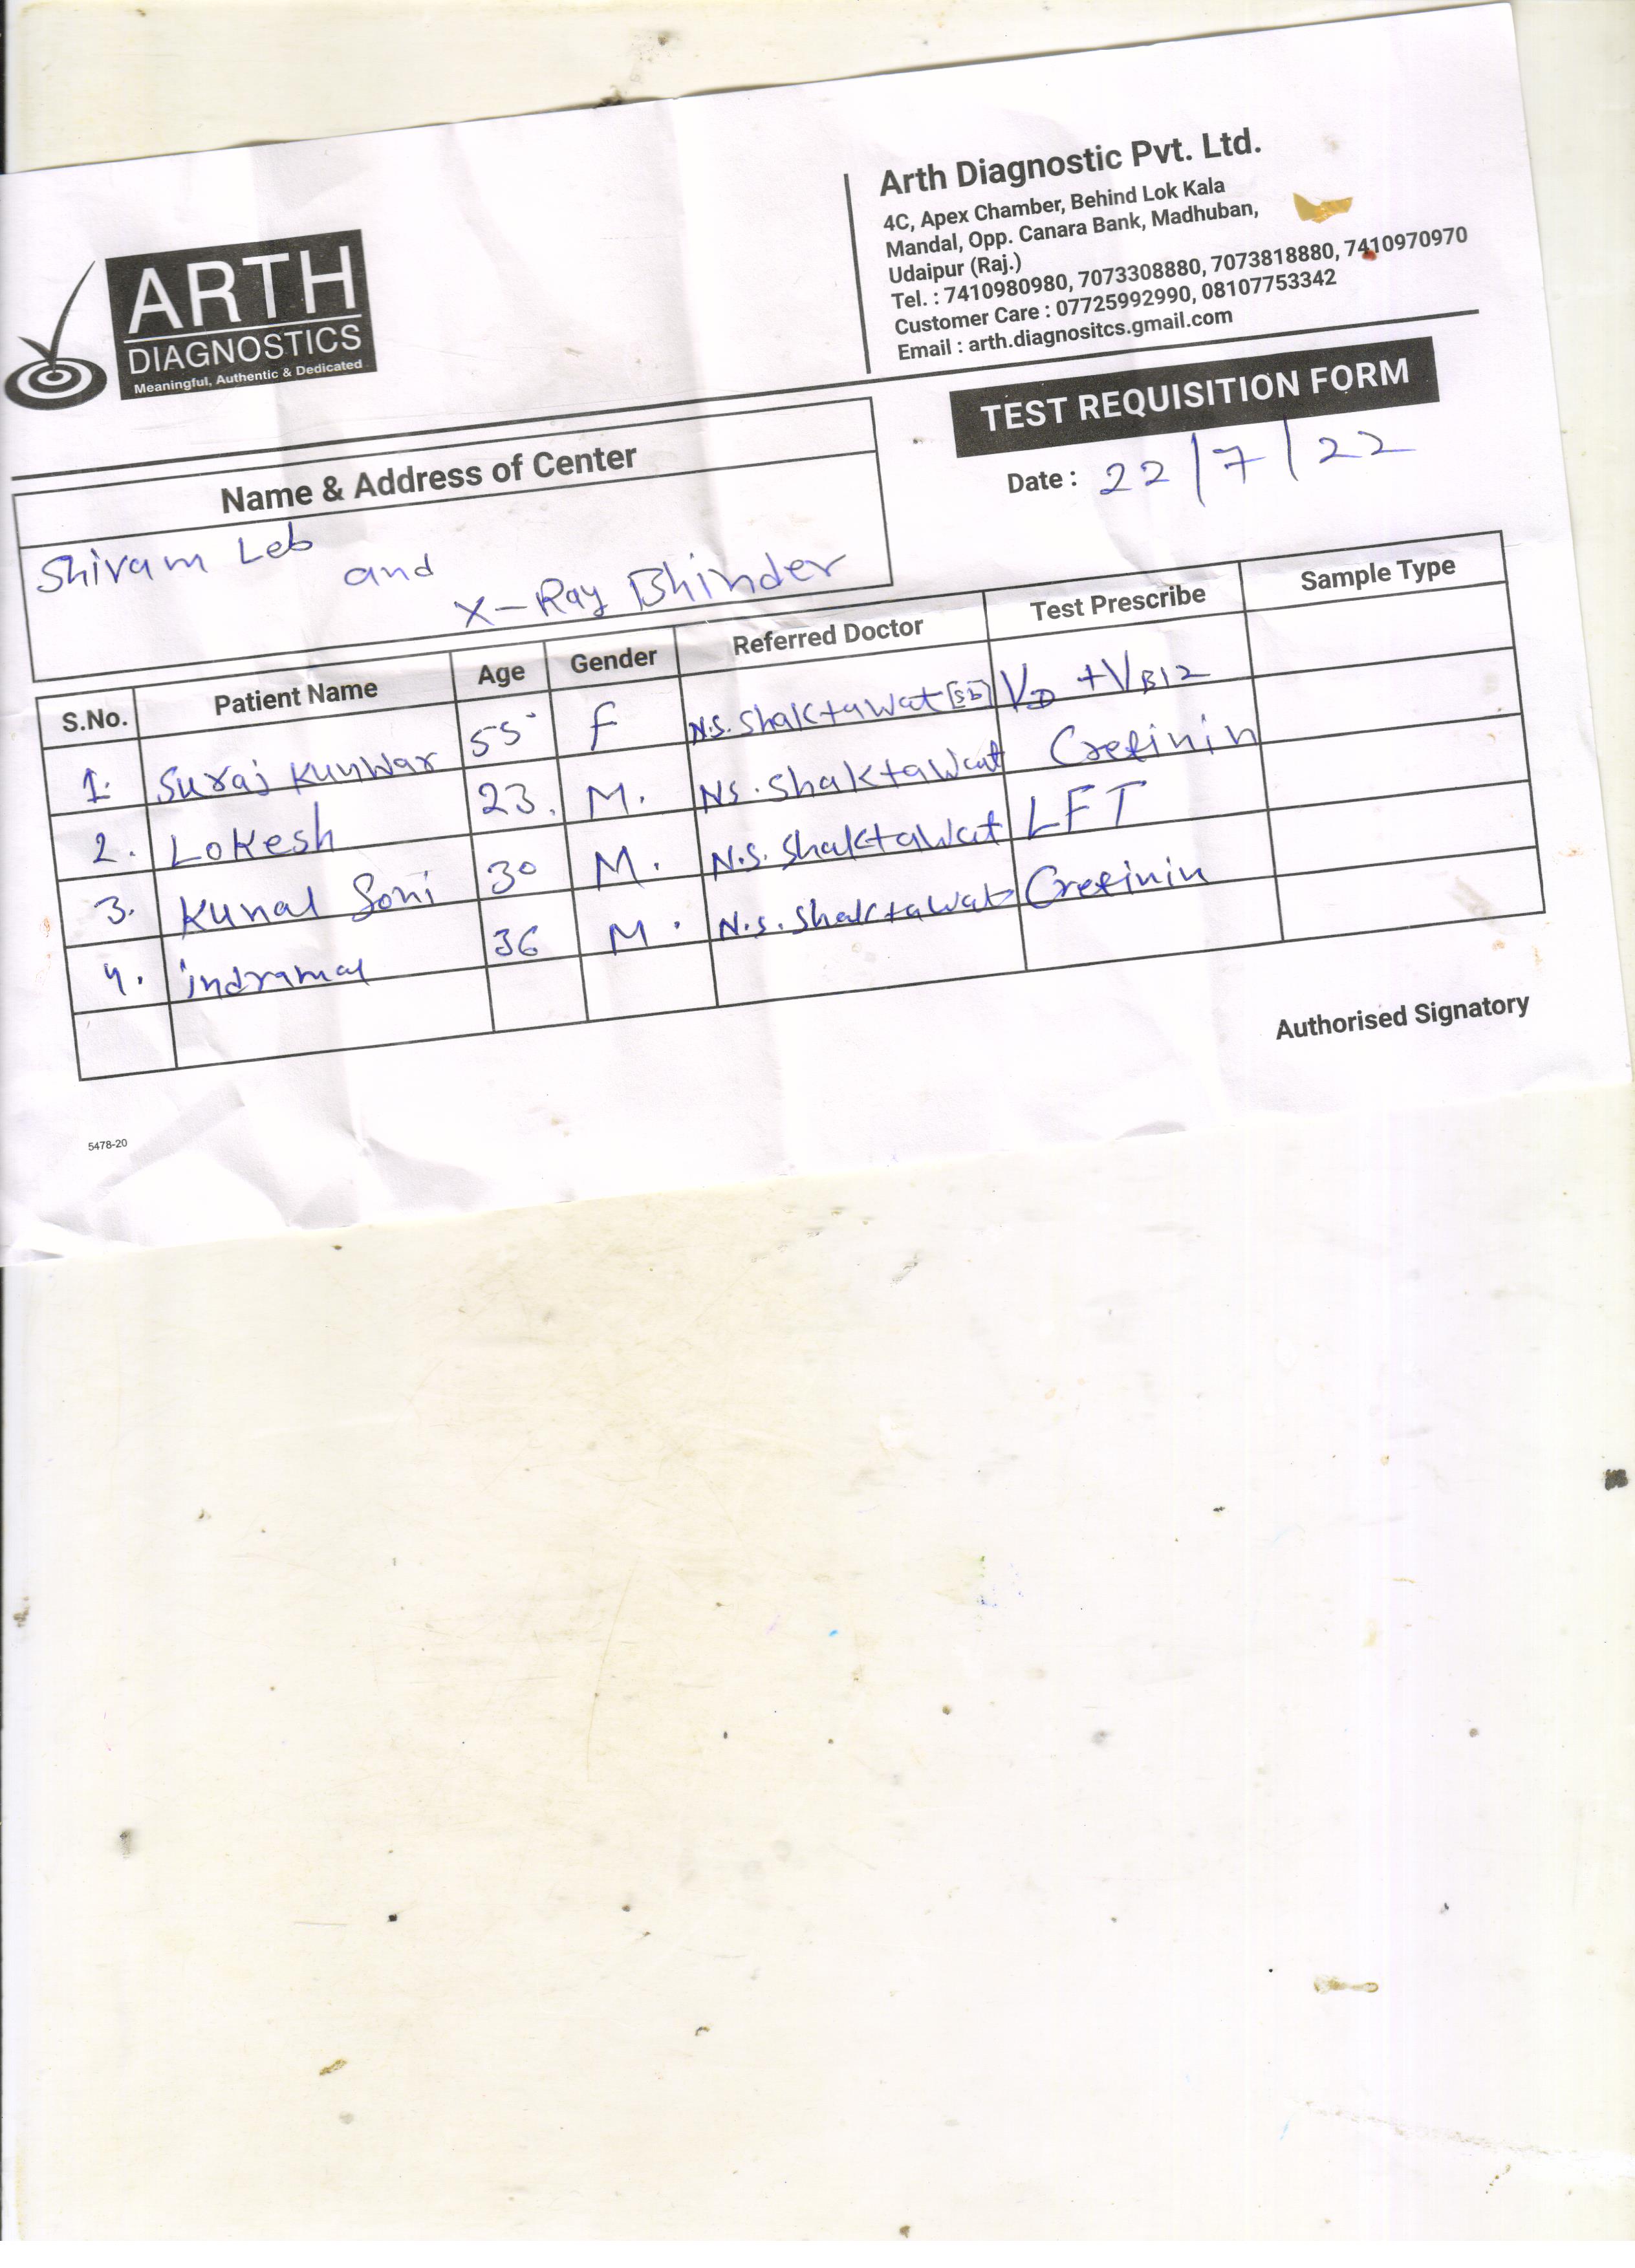 ARTH
DIAGNOSTICS
Meaningful, Authentic & Dedicated
Arth Diagnostic Pvt. Ltd.
4C, Apex Chamber, Behind Lok Kala
Mandal, Opp. Canara Bank, Madhuban,
Udaipur (Raj.)
Tel. : 7410980980, 7073308880, 7073818880, 7410970970
Customer Care : 07725992990, 08107753342
Email : arth.diagnositcs.gmail.com
TEST REQUISITION FORM
Date : 22/7/22
Name & Address of Center
Shivam Leb
and
X-Ray Bhinder
S.No. Patient Name Age Gender Referred Doctor Test Prescribe Sample Type
1. Suraj Kunwar 55 F N.S. Shaktawat [Sb] VD + VB12
2. Lokesh 23. M. NS. Shaktawat Cretinin
3. Kunal Soni 30 M. N.S. Shaktawat LFT
4. indramal 36 M. N.S. Shaktawat Cretinin
Authorised Signatory
5478-20